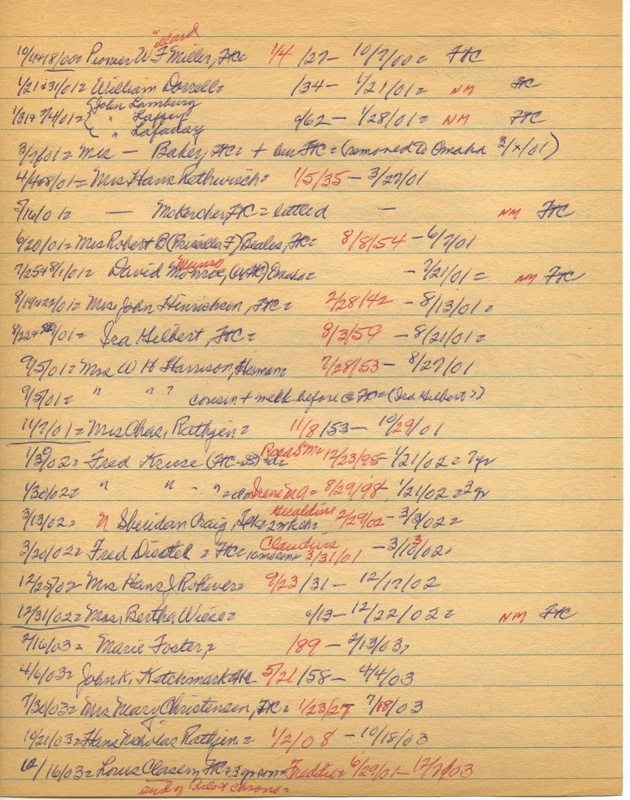 illard
10/4+18/00= Pioneer W F Miller, FtC= 1/4 /27 - 10/7/00= FtC
1/21+31/01= William Dorrell= /34 - 1/21/01= NM FtC
John Lamburg
1/31+ 7/4/01= { " Laffey 9/62 - 1/28/01= NM FtC
" Lafaday
3/7/01= Mrs - Baker, FtC= + bur FtC= (removed to Omaha 3/x/01)
4/4+8/01= Mrs Hans Rethwisch= 1/5/35 - 3/27/01
5/16/01= - McKercher, FtC= - NM FtC
6/20/01= Mrs Robert B (Priscilla F) Beales, FtC= 8/8/54 - 6/7/01
Munro
7/25+8/1/01= David Monroe, Omaha= - 7/21/01= NM FtC
8/14+22/01= Mrs John Hinrichsen, FtC= 2/28/42 - 8/13/01=
Ira Gilbert, FtC= 8/3/59 - 8/21/01=
9/5/01= Mrs W H Harrison, Herman= 7/28/53 - 8/27/01
9/5/01= " " ? cousin + before @ FtC= (Ira Gilbert?)
11/7/01= Mrs Chas, Rathjen= 11/8/53 - 10/29/01
1/30/02= Fred Kruse Rosa S M= 12/23/95 - 1/21/02= 7yr
4/30/02= " " - Irene M A= 8/29/98 - 1/21/02= 3yr
Geraldine
3/13/02= Sheridan Craig, 2/29/02 - 3/3/02=
3/20/02= Fred Diestel = FtC= 10 mos Claudius 3/31/01 - 3/13/02=
12/25/02= Mrs Hans J Rohwer= 9/23/31 - 12/17/02
12/31/02= Mrs, Bertha Wiese= 6/13 - 12/22/02= NM FtC
2/16/03= Marie Foster, /89 - 2/13/03,
4/6/03= John K, Ketchmark FtC 5/21/58 - 4/4/03
7/30/03= Mrs Mary Christensen, FtC= 1/23/27 7/18/03
10/21/03= Hans Nicholas Rathjen= 1/2/08 - 10/18/03
12/16/03= Louis Clasen, FtC= 3yr son= Freddie 6/29/01 - 12/7/03
end of Pilot + chrons=